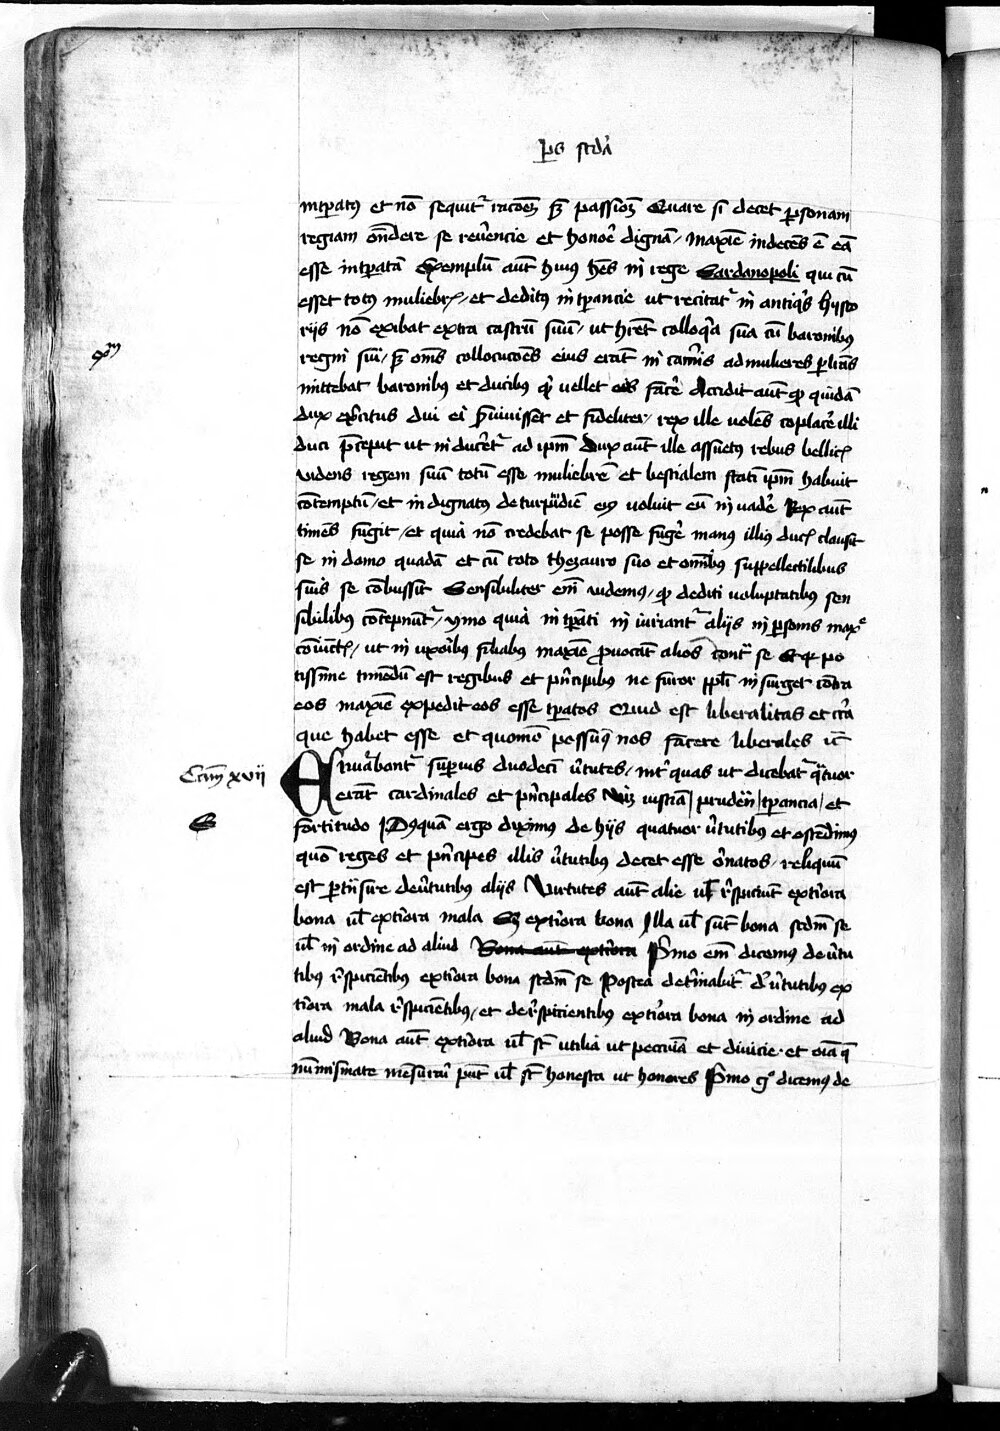 ps scda
intpatus et nō sequitr racōeȝ sȝ passiōeȝ Quare si decet psonam
regiam ondere se reuerencie et honore dignā / maxīe indecēs ē eā
esse intpatā Exemplū aūt huius hēs in rege Sardanopoli qui cū
esset totus muliebris / et deditus intpancie ut recitatr in antiquis hysto
riis nō exibat extra castrū suū / ut hret colloquia sua cū baronibus
regni sui / sȝ oms collocucōes eius erāt in camis ad mulieres p lrās
mittebat baronibus et ducibus qd vellet eos face Accidit aūt qp quidā
dux excitus dui ei seruiuisset et fideliter / rex ille volēs coplace illi
duci pcepit ut in ducetr ad ipm Dux aūt ille assuetus rebus bellicis
videns regem suū totū esse muliebrē et bestialem statī ipm habuit
cōtemptū / et in dignatus de turpitudīe eius voluit eū in uade Rex aūt
timēs fugit / et quia nō credebat se posse fuge manus illius ducis clausit
se in domo quadā et cū toto thezauro suo et omībus suppellectilibus
suis se cōbussit Sensibiliter em videmus / qp dediti voluptatibus sen
sibilibus cōtepnūtr / ymo quia in tpati in iuriantr aliis in psonis maxe
cōiūctis / ut in vxoribus filiabus maxīe puocāt alios contra se Et qr po
tissime timēdū est regibus et pncipibus ne furor ppli in surget contra
eos maxīe expedit eos esse tpatos Quid est liberalitas et circa
que habet esse et quomō possumus nos facere liberales ic
Cam xvii
Enuabantr supius duodeci vtutes / intr quas ut dicebatr quatuor
erāt cardinales et pncipales viȝ iusticia / prudencia / tpancia / et
fortitudo Postquam ergo diximus de hiis quatuor vtutibus et ostēdimus
quō reges et pncipes illis vtutibus decet esse ornatos / reliquū
est ptransire de vtutibus aliis Virtutes aūt alie ul rspiciūt exteriora
bona ul exteriora mala Sȝ exteriora bona Illa ul sūt bona scdm se
ul in ordine ad aliud Bona aūt exteriora Primo em dicemus de vtu
tibus rspiciētibus exteriora bona scdm se Postea detminabitr de vtutibus ex
teriora mala rspiciētibus / et de rspicientibus exteriora bona in ordine ad
aliud Bona aūt exteriora ul st vtilia ut peccunia et diuicie et oīa que
numismate mesurari pnt ul st honesta ut honores Primo go dicemus de